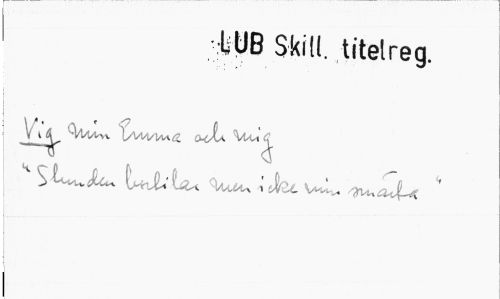 LUB Skill. titelreg.
Vig min Emma och mig
"Stunden bortilar men icke min smärta"